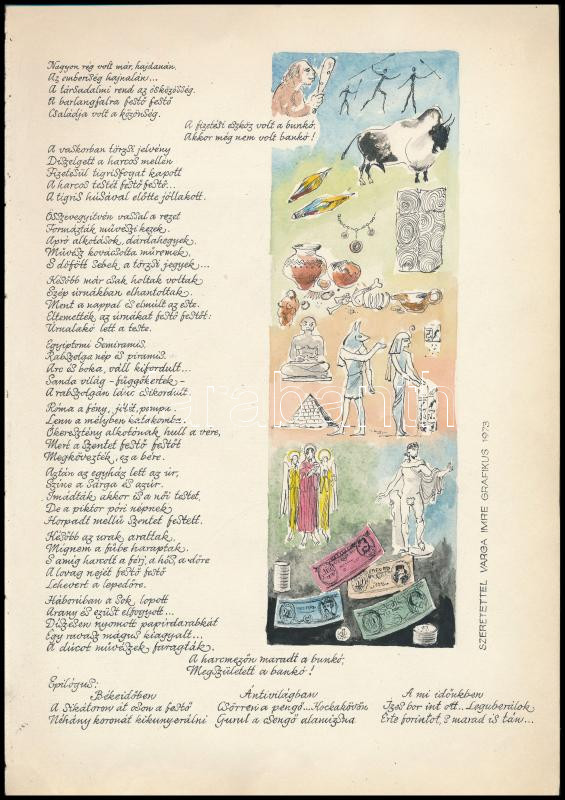 Nagyon rég volt már, hajdanán,
Az emberiség hajnalán...
A társadalmi rend az ősközösség.
A barlangfalra festő festő
Családja volt a közönség.
A fizetési eszköz volt a bunkó,
Akkor még nem volt bankó!
A vaskorban törzsi jelvény
Díszelgett a harcos mellén
Fizetésül tigrisfogat kapott
A harcos testét festő festő...
A tigris húsával előtte jóllakott.
Összevegyítvén vassal a rezet
Formázták művészi kezek.
Apró alkotások, dárdahegyek,
Művész kovácsolta műremek,
S döfött sebek, a törzsi jegyek...
Később már csak holtak voltak
Szép úrnákban elhantoltak.
Ment a nappal és elmúlt az este.
Eltemették az úrnákat festő festőt:
Úrnalakó lett a teste.
Egyiptomi Semiramis,
Rabszolga nép és piramis.
Arc és boka, váll kifordult...
Sanda világ - függőkertek -
A rabszolgán lánc csikordult.
Róma a fény, jólét, pompa.
Lenn a mélyben katakomba.
Őkeresztény alkotónak hull a vére,
Mert a Szentet festő festőt
Megkövezték, ez a bére.
Aztán az egyház lett az úr,
Színe a sárga és azúr.
Imádták akkor is a női testet,
De a piktor póri népnek
Horpadt mellű Szentet festett.
Később az urak arattak,
Mignem a fűbe haraptak.
S amíg harcolt a férj, a hős, a dőre
A lovag nejét festő festő
Lehevert a lepedőre.
Háborúban a sok lopott
Arany és ezüst elfogyott...
Díszesen nyomott papírdarabkát
Egy ravasz mágus kiagyalt...
A dúcot művészek faragták.
A harcmezőn maradt a bunkó,
Megszületett a bankó!
Epilógus:
Békeidőben
A Sikátoron át oson a festő
Néhány koronát kikunyerálni
Antivilágban
Csörren a pengő... Kockakövön
Gurul a csengő alamizsna
A mi időnkben
Ízes bor int ott... Leguberálok
Érte forintot, s marad is tán...
SZERETETTEL VARGA IMRE GRAFIKUS 1973